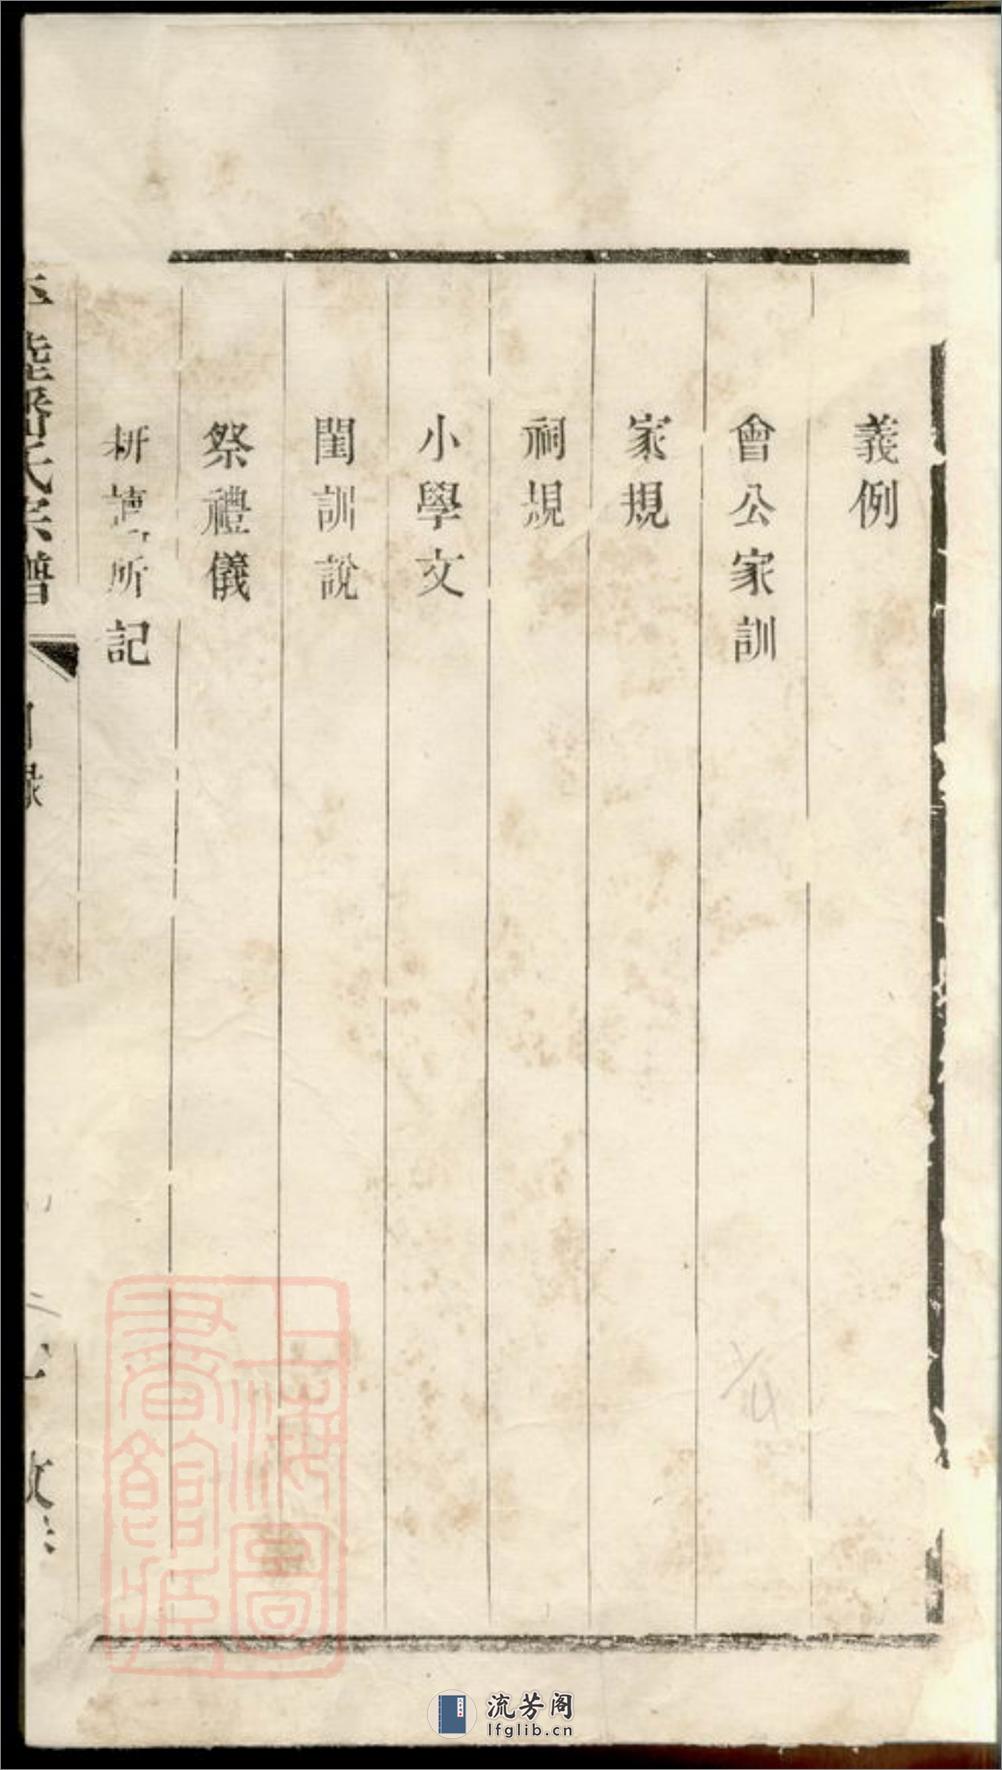 義例
會公家訓
家規
祠規
小學文
閨訓說
祭禮儀
所記
氏宗譜
目錄
上海圖書館藏
流芳阁
lfglib.cn